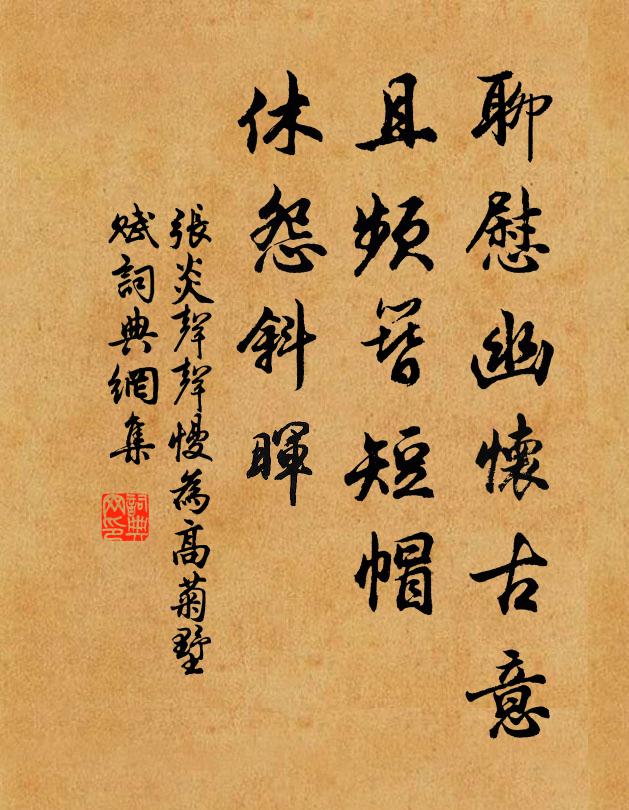 聊慰幽懷古意
且頻簪短帽
休怨斜暉
張炎聲聲慢為高菊墅
賦詞典網集
詞典
网印